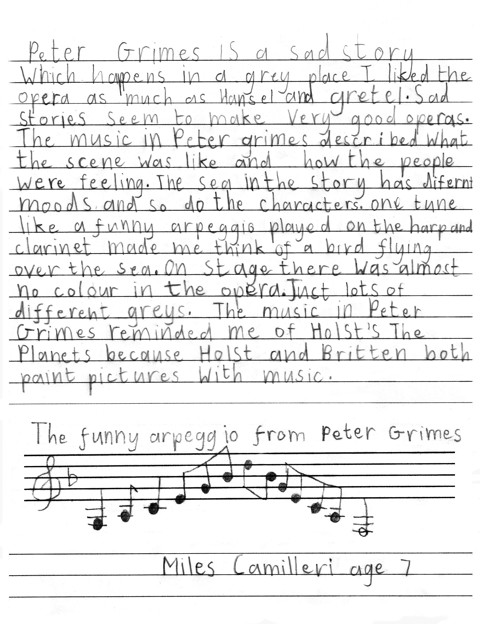 Peter Grimes is a sad story
Which happens in a grey place I liked the
opera as much as Hansel and gretel. Sad
stories seem to make very good operas.
The music in Peter grimes described what
the scene was like and how the people
were feeling. The sea in the story has difernt
moods and so do the characters. one tune
like a funny arpeggio played on the harp and
clarinet made me think of a bird flying
over the sea. On stage there was almost
no colour in the opera. Just lots of
different greys. The music in Peter
Grimes reminded me of Holst's The
Planets because Holst and Britten both
paint pictures with music.
The funny arpeggio from Peter Grimes
Miles Camilleri age 7